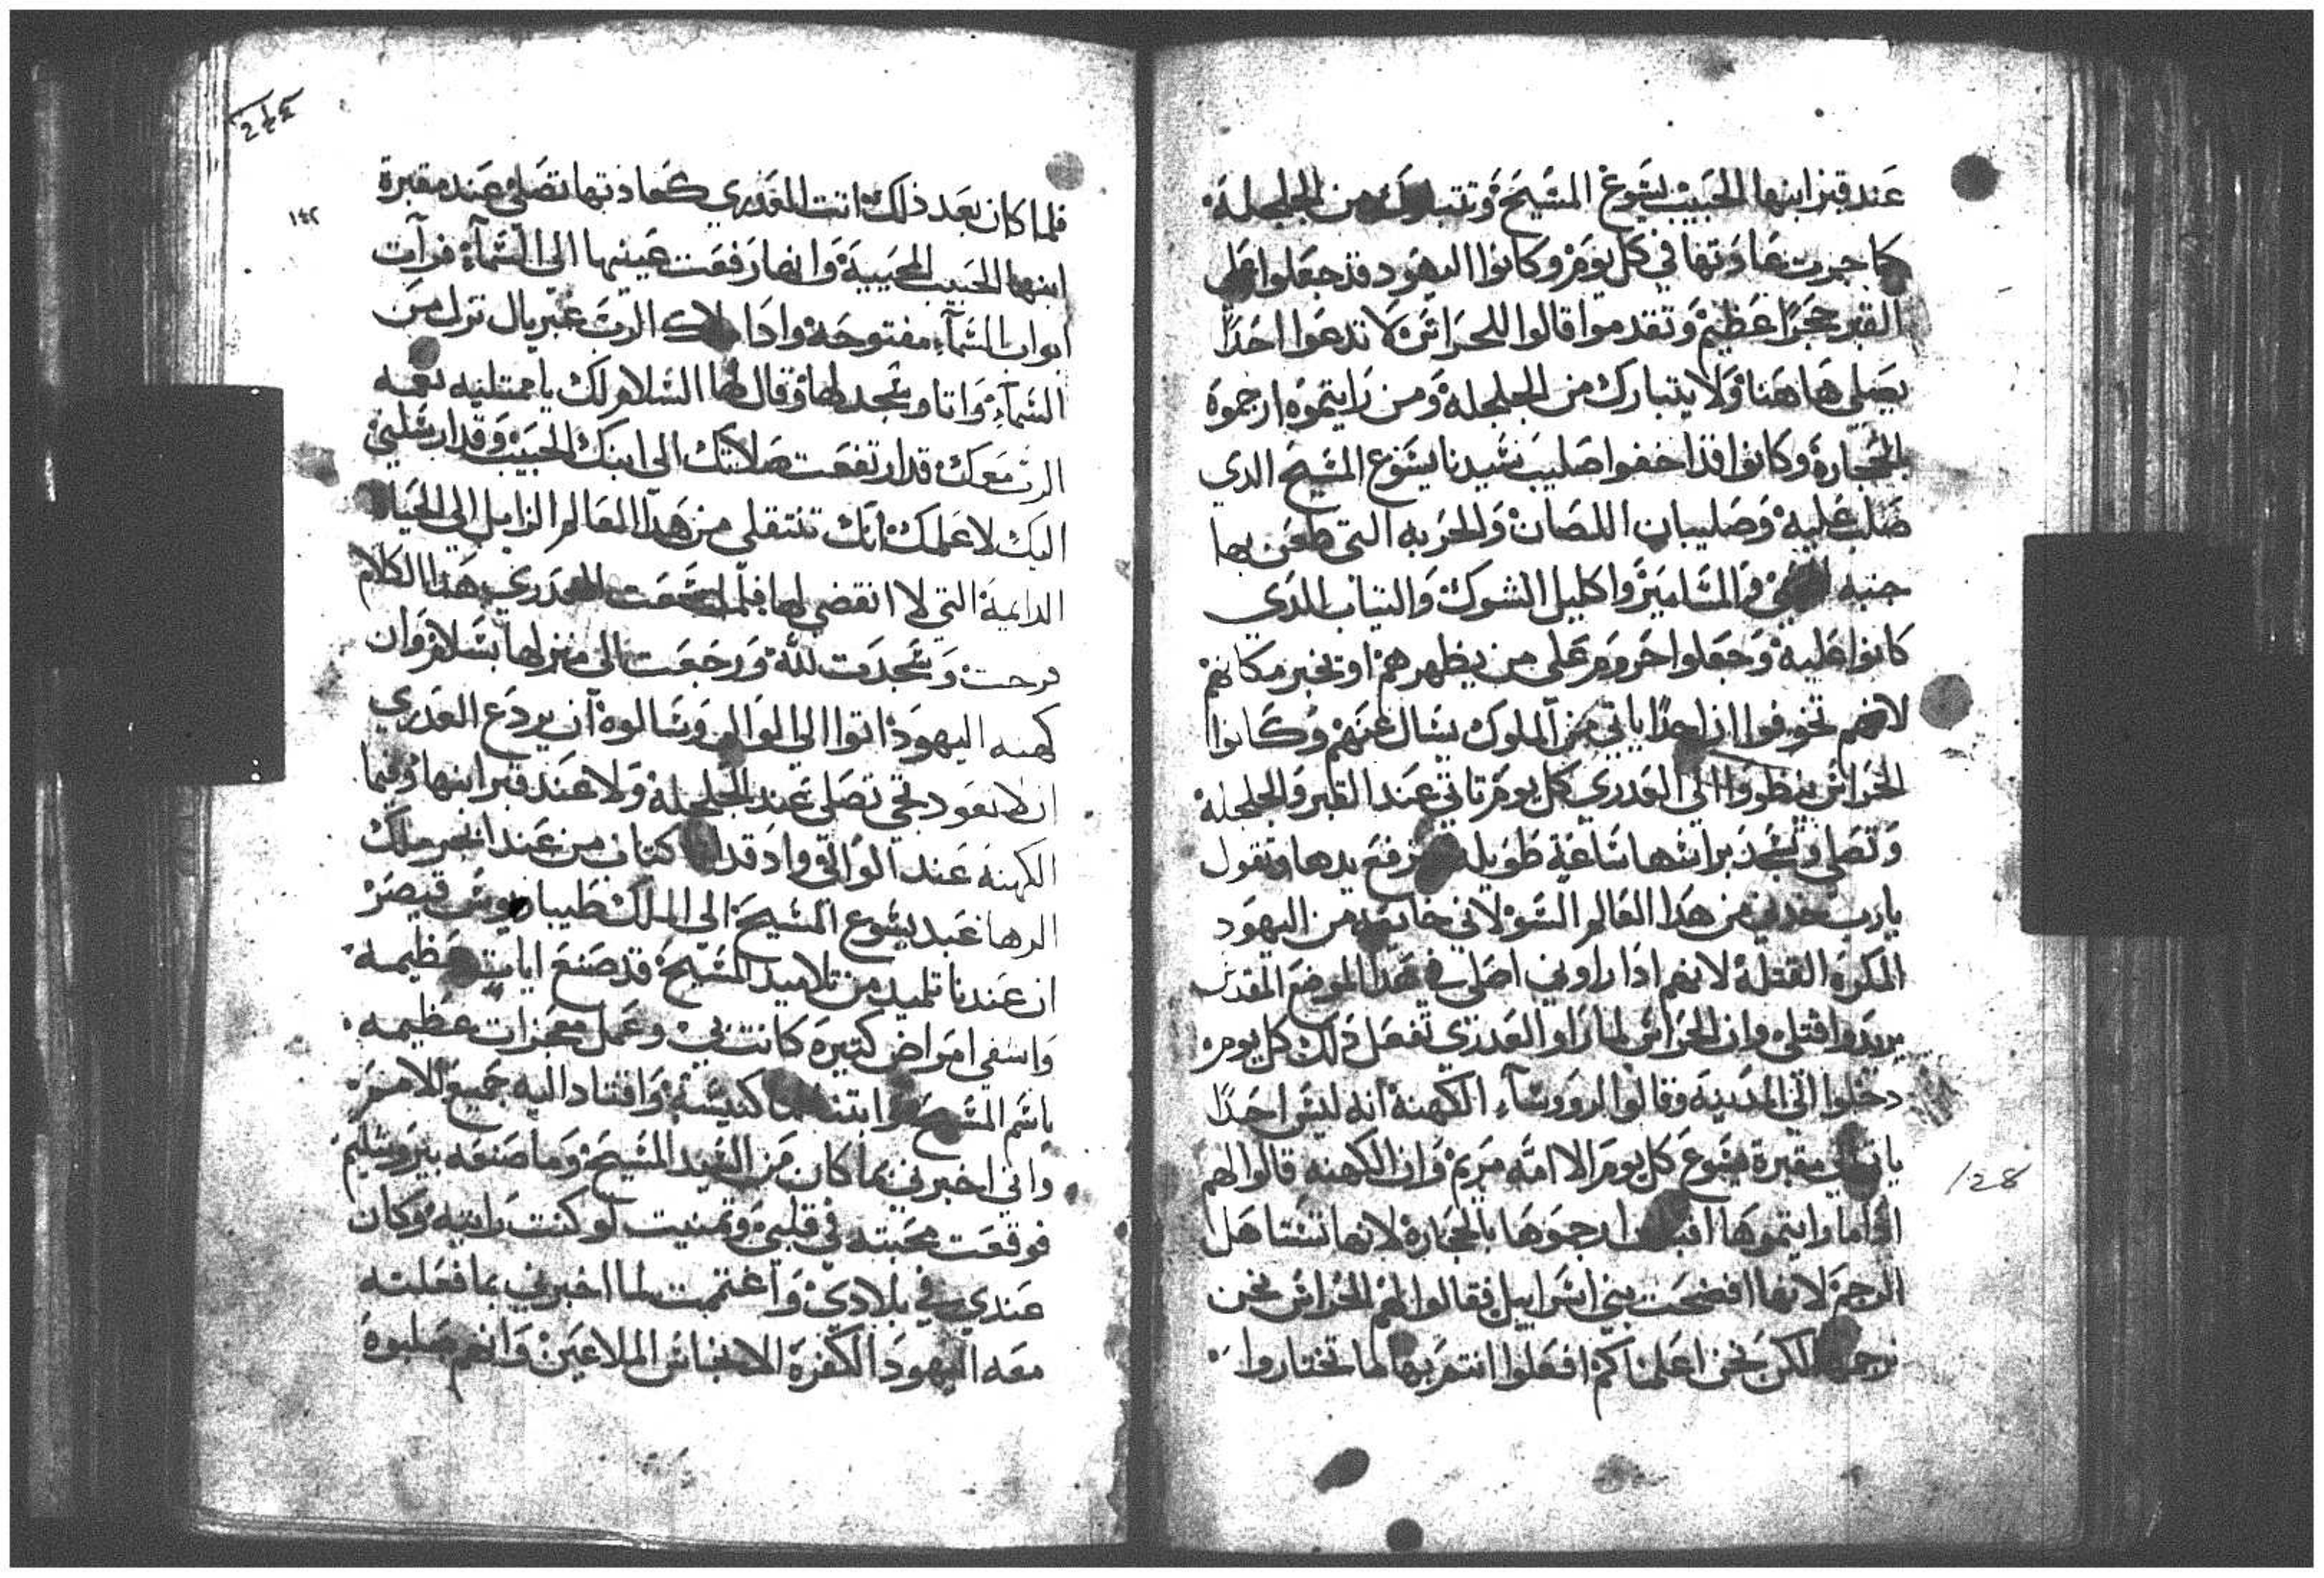 عند قبر ابنها الحبيب يشوع المشيح وتتبارك من الجلجلة
كما جرت عادتها في كل يوم وكانوا اليهود قد جعلوا على
القبر حجرًا عظيم وتقدموا قالوا للحراس لا تدعوا احدًا
يصلي هاهنا ولا يتبارك من الجلجلة ومن رايتموه ارجموه
بالحجارة وكانوا قد اخفوا صليب سيدنا يسوع المسيح الدي
صلب عليه وصليبان اللصان والحربه التي طعن بها
جنبه والمسامير واكليل الشوك والتياب الدي
كانوا عليه وجعلوا حروم على من يظهرهم او يخبر مكانهم
لانهم تخوفوا ان احدًا ياتي من الملوك يسال عنهم وكانوا
الحراس ينظروا الي العدري كل يوم تاتي عند القبر والجلجلة
وتصلي وتسجد براسها ساعة طويله وترفع يدها وتقول
يارب خدني من هدا العالم السو لاني خايفه من اليهود
المكرة القتلة لانهم ادا راوني اصلي في هدا الموضع المقدس
يريدوا قتلي وان الحراس لما راوا العدري تفعل دلك كل يوم
دخلوا الي المدينه وقالوا لرووساء الكهنة انه ليس احدًا
ياتي الي مقبرة يشوع كل يوم الا امه مريم وان الكهنه قالوا لهم
اداما رايتموها ارجموها بالحجارة لانها تستاهل
الرجم لانها افضحت بني اسراييل فقالوا لهم الحراس نحن
نرجمها لكن نحن اعلمناكم افعلوا انتم بها لما تختاروا
١٢٨
٢٤٤
١٤٢
فلما كان بعد ذلك اتت العدري كعادتها تصلي عند مقبرة
ابنها الحبيب المحيية وانها رفعت عينيها الي السماء فرات
ابواب السماء مفتوحة وادا ملاك الرب غبريال نزل من
السماء واتا وسجد لها وقال لها السلام لك يا ممتليه نعمه
الرب معك قد ارتفعت صلاتك الي ابنك الحبيب وقد ارسلني
اليك لاعلمك انك تنتقلي من هدا العالم الزايل الي الحياة
الدايمة التي لا انقضى لها فلما سمعت العدري هدا الكلام
فرحت وسجدت لله ورجعت الي منزلها بسلام وان
كهنه اليهود اتوا الي الوالي وسالوه ان يردع العدري
ان لا تعود تجي تصلي عند الجلجلة ولا عند قبر ابنها وفيما
الكهنة عند الوالي واد قد كتاب من عند ابجر ملك
الرها عبد يشوع المسيح الي الملك طيباريوس قيصر
ان عندنا تلميد من تلاميد المسيح قد صنع ايات عظيمة
واشفي امراض كتيرة كانت بي وعمل معجزات عظيمه
باسم المسيح وابتنا كنيسة واقتاد اليه جميع الامر
واني اخبرني بما كان من السيد المسيح وما صنعه بيروسليم
فوقعت محبته في قلبي وتمنيت لو كنت رايته وكان
عندي في بلادي واغتميت لما اخبرني بما فعلته
معه اليهود الكفرة الانجاس الملاعين وانهم صلبوه